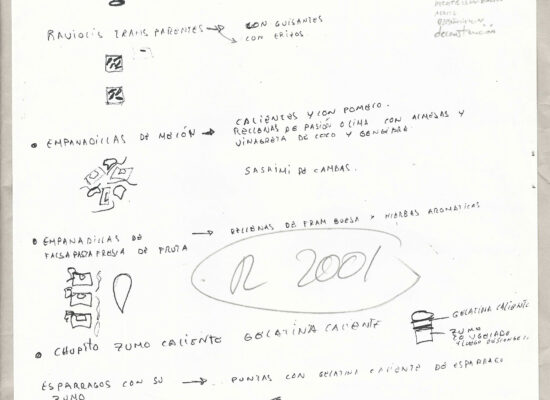 deconstrucción
RAVIOLIS TRANSPARENTES → CON GUISANTES
CON ERIZOS.
CALIENTES Y CON POMELO.
• EMPANADILLAS DE MELÓN → RELLENAS DE PASIÓN O LIMA CON ALMEJAS Y
VINAGRETA DE COCO Y GENGIBRE
SASHIMI DE GAMBAS.
• EMPANADILLAS DE → RELLENAS DE FRAMBUESA Y HIERBAS AROMATICAS
FALSA PASTA FRESCA DE FRUTA
R 2001
GELATINA CALIENTE
• CHUPITO ZUMO CALIENTE GELATINA CALIENTE
ZUMO
CONGELADO
ESPARRAGOS CON SU → PUNTAS CON GELATINA CALIENTE DE ESPARRAGO
ZUMO